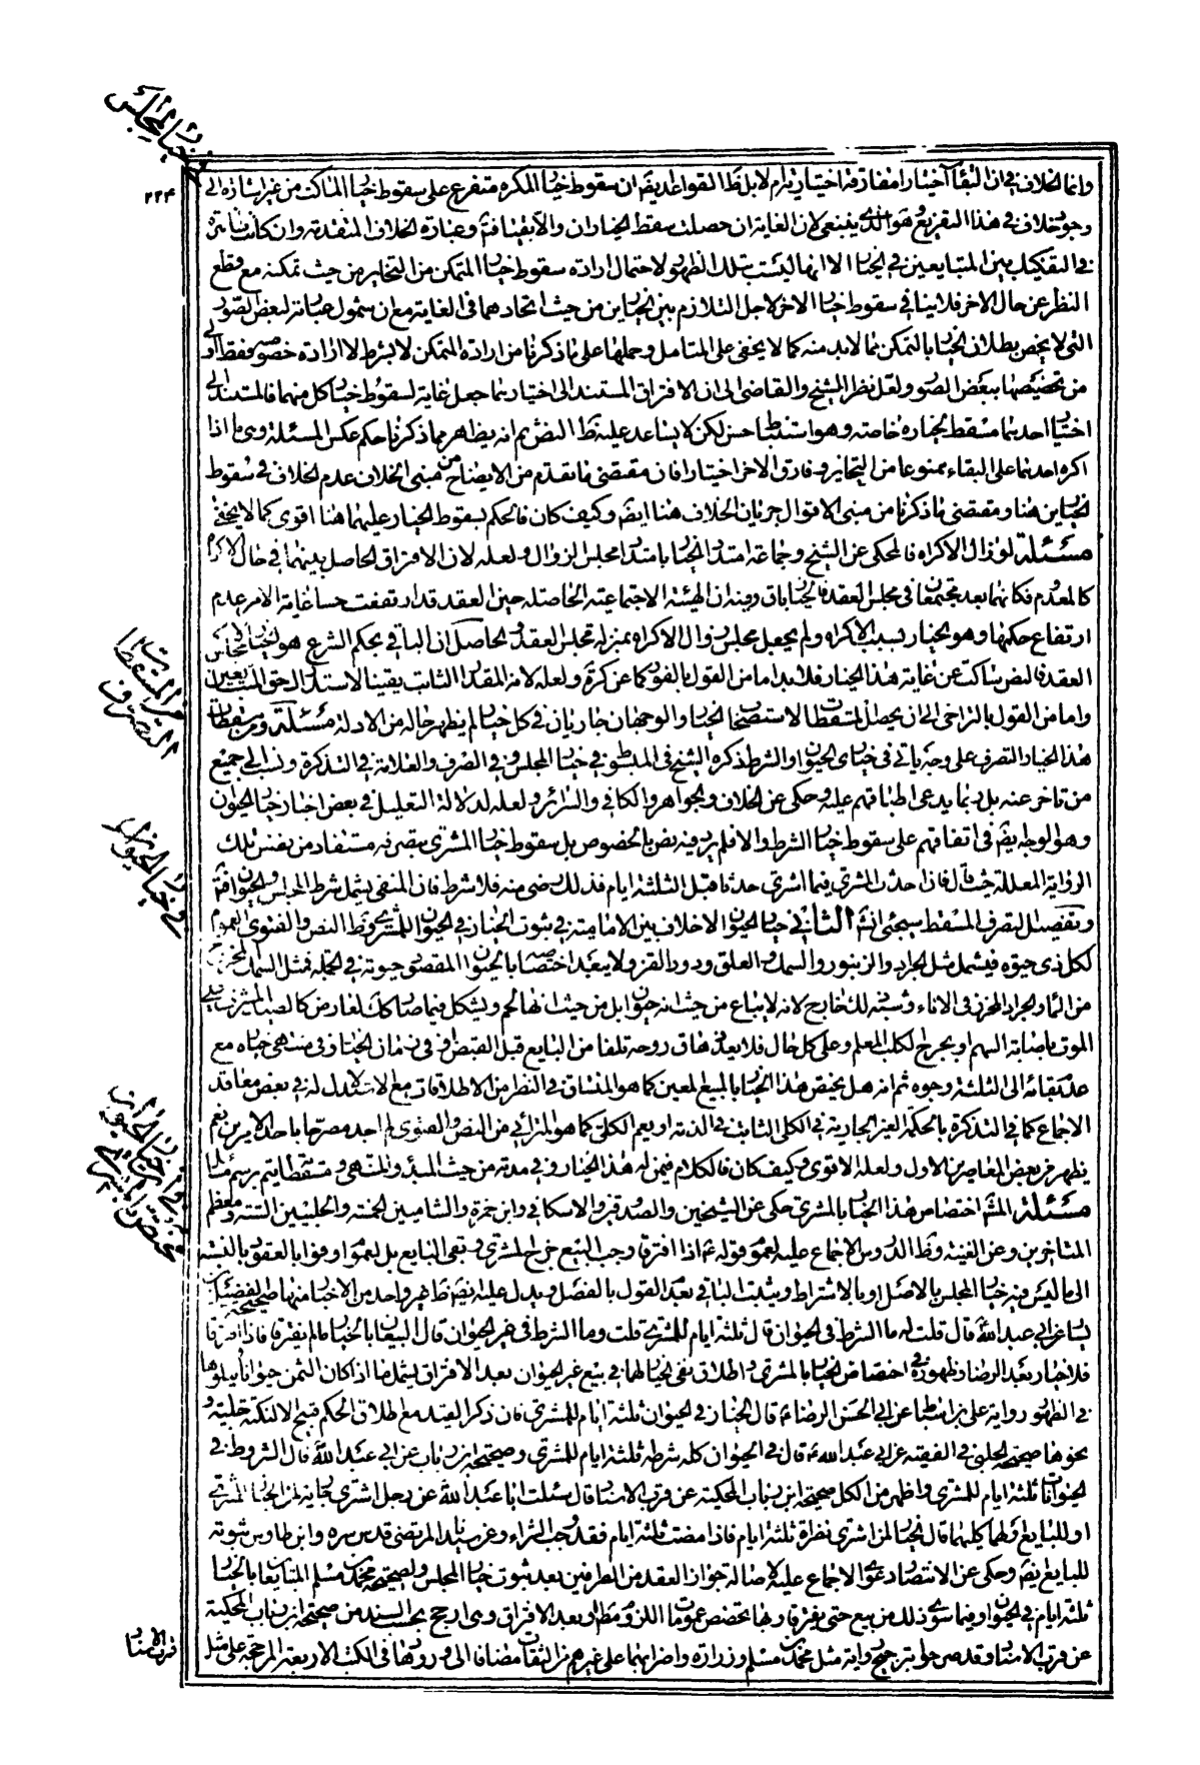 في خيار المجلس
٢٢٤
وانما الخلاف في ان البقاء اختيارا مفارقة اختيارية ام لا بل ظ القواعد ايضا ان سقوط خيار المكره متفرع على سقوط خيار الماكث من غير اشارة الى
وجود خلاف في هذا التفريع وهو الذي ينبغي لان الغاية ان حصلت سقط الخياران والا بقيا فتم وعبارة الخلاف المتقدمة وان كانت ظاهرة
في التفكيك بين المتبايعين في الخيار الا انها ليست بتلك الظهور لاحتمال ارادة سقوط خيار المتمكن من التخاير من حيث تمكنه مع قطع
النظر عن حال الاخر فلا ينافي سقوط خيار الاخر لاجل التلازم بين الخيارين من حيث اتحادهما في الغاية مع ان شمول عبارته لبعض الصور
التي لا يختص بطلان الخيار بالتمكن مما لا بد منه كما لا يخفى على المتامل وحملها على ما ذكرنا من ارادة المتمكن لا بشرط لا ارادة خصوصه فقط اولى
من تخصيصها ببعض الصور ولعل نظر الشيخ والقاضي الى ان الافتراق المستند الى اختيارهما جعل غاية لسقوط خيار كل منهما فالمستند الى
اختيار احدهما مسقط لخياره خاصة وهو استنباط حسن لكن لا يساعد عليه ظ النص ثم انه يظهر مما ذكرنا حكم عكس المسئلة وهي ما اذا
اكره احدهما على البقاء ممنوعا من التخاير وفارق الاخر اختيارا فان مقتضى ما تقدم من الايضاح من مبنى الخلاف عدم الخلاف في سقوط
الخيارين هنا ومقتضى ما ذكرنا من مبنى الاقوال جريان الخلاف هنا ايضا وكيف كان فالحكم بسقوط الخيار عليهما هنا اقوى كما لا يخفى
مسئلة لو زال الاكراه فالمحكي عن الشيخ وجماعة امتداد الخيار بامتداد مجلس الزوال ولعله لان الافتراق الحاصل بينهما في حال الاكراه
كالمعدوم فكانهما بعد مجتمعان في مجلس العقد فالخيار باق وفيه ان الهيئة الاجتماعية الحاصلة حين العقد قد ارتفعت حسا غاية الامر عدم
ارتفاع حكمها وهو الخيار بسبب الاكراه ولم يجعل مجلس زوال الاكراه بمنزلة مجلس العقد والحاصل ان الباقي بحكم الشرع هو الخيار لا مجلس
العقد فالنص ساكت عن غاية هذا الخيار فلا بد اما من القول بالفور كما عن كرة ولعله لانه المقدار الثابت يقينا لاستدراك حق المتبايعين
واما من القول بالتراخي الى ان يحصل المسقطات لاستصحاب الخيار والوجهان جاريان في كل خيار لم يظهر حاله من الادلة مسئلة ومن مسقطات
هذا الخيار التصرف على وجه ياتي في خياري الحيوان والشرط ذكره الشيخ في المبسوط في خيار المجلس وفي الصرف والعلامة في التذكرة ونسب الى جميع
من تاخر عنه بل ربما يدعى اطباقهم عليه وحكي عن الخلاف والجواهر والكافي والسرائر ولعله لدلالة التعليل في بعض اخبار خيار الحيوان
وهو الوجه ايضا في اتفاقهم على سقوط خيار الشرط والا فلم يرد فيه نص بالخصوص بل سقوط خيار المشتري بتصرفه مستفاد من نفس تلك
الرواية المعللة حيث قال فان احدث المشتري فيما اشترى حدثا قبل الثلثة ايام فذلك رضى منه فلا شرط فان المنفي يشمل شرط المجلس والحيوان فتم
وتفصيل التصرف المسقط سيجئ انش الثاني في خيار الحيوان لا خلاف بين الامامية في ثبوت الخيار في الحيوان للمشتري وظ النص والفتوى العموم
لكل ذي حيوة فيشمل مثل الجراد والزنبور والسمك والعلق ودود القز ولا يبعد اختصاصه بالحيوان المقصود حيوته في الجملة فمثل السمك المخرج
من الماء والجراد المحرز في الاناء وشبه ذلك خارج لانه لا يباع من حيث انه حيوان بل من حيث انه لحم ويشكل فيما صار كذلك لعارض كالصيد المشرف على
الموت باصابة السهم او بجرح الكلب المعلم وعلى كل حال فلا يعد زهاق روحه تلفا من البايع قبل القبض او في زمان الخيار وفي منتهى خياره مع
عدم بقائه الى الثلثة وجوه ثم انه هل يختص هذا الخيار بالمبيع المعين كما هو المنساق في النظر من الاطلاقات مع الاستدلال له في بعض معاقد
الاجماع كما في التذكرة بالحكمة الغير الجارية في الكلي الثابت في الذمة او يعم الكلي كما هو المترائي من النص والفتوى لم اجد مصرحا باحد الامرين نعم
يظهر من بعض المعاصرين الاول ولعله الاقوى وكيف كان فالكلام فيمن له هذا الخيار وفي مدته من حيث المبدء والمنتهى ومسقطاته يتم برسم مسائل
مسئلة المش اختصاص هذا الخيار بالمشتري حكي عن الشيخين والصدوقين والاسكافي وابن حمزة والشاميين الخمسة والحليين الستة ومعظم
المتاخرين وعن الغنية وظ الدروس الاجماع عليه لعموم قوله ع اذا افترقا وجب البيع خرج المشتري وبقي البايع بل لعموم اوفوا بالعقود بالنسبة
الى ما ليس فيه خيار المجلس بالاصل او بالاشتراط ويثبت الباقي بعدم القول بالفصل ويدل عليه ايضا ظاهر غير واحد من الاخبار منها صحيحة الفضيل بن
يسار عن ابي عبد الله قال قلت له ما الشرط في الحيوان قال ثلثة ايام للمشتري قلت وما الشرط في غير الحيوان قال البيعان بالخيار ما لم يفترقا فاذا افترقا
فلا خيار بعد الرضا وظهوره في اختصاص الخيار بالمشتري واطلاق نفي الخيار لهما في بيع غير الحيوان بعد الافتراق يشمل ما اذا كان الثمن حيوانا ويتلوها
في الظهور رواية علي بن اسباط عن ابي الحسن الرضا ع قال الخيار في الحيوان ثلثة ايام للمشتري فان ذكر القيد مع اطلاق الحكم قبيح الا لنكتة جلية و
نحوها صحيحة الحلبي في الفقيه عن ابي عبد الله ع قال في الحيوان كله شرط ثلثة ايام للمشتري وصحيحة ابن رئاب عن ابي عبد الله قال الشروط في
الحيوانات ثلثة ايام للمشتري واظهر من الكل صحيحة ابن رئاب المحكية عن قرب الاسناد قال سئلت ابا عبد الله عن رجل اشترى جارية لمن الخيار للمشتري
او للبايع او لهما كليهما قال الخيار لمن اشترى نظرة ثلثة ايام فاذا مضت ثلثة ايام فقد وجب الشراء وعن سيدنا المرتضى قدس سره وابن طاوس ثبوته
للبايع ايضا وحكي عن الانتصار دعوى الاجماع عليه لاصالة جواز العقد من الطرفين بعد ثبوت خيار المجلس ولصحيحة محمد بن مسلم المتبايعان بالخيار
ثلثة ايام في الحيوان وفيما سوى ذلك من بيع حتى يفترقا وبها تخصص عمومات اللزوم مطلقا او بعد الافتراق وهي ارجح بحسب السند من صحيحة ابن رئاب المحكية
عن قرب الاسناد وقد صرحوا بترجيح رواية مثل محمد بن مسلم وزرارة واضرابهما على غيرهم من الثقات مضافا الى ورودها في الكتب الاربعة المرجحة على مثل
من المسقطات التصرف
في خيار الحيوان
في ان خيار الحيوان مختص بالمشتري
قرب الاسناد